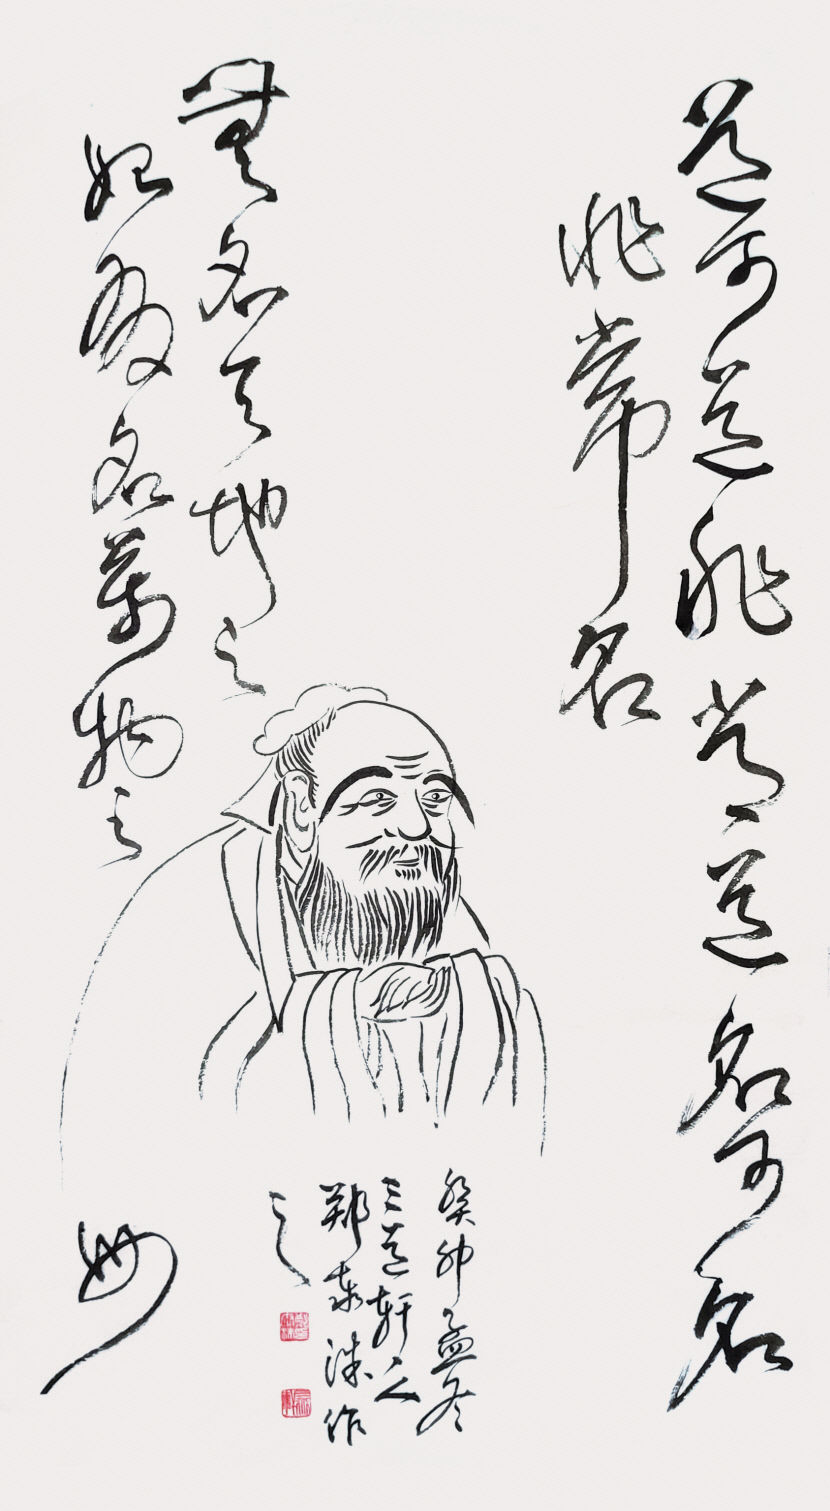 道可道非常道名可名
非常名
無名天地之
始有名萬物之
母
癸卯孟冬
三道軒人
鄭泰洙作
之